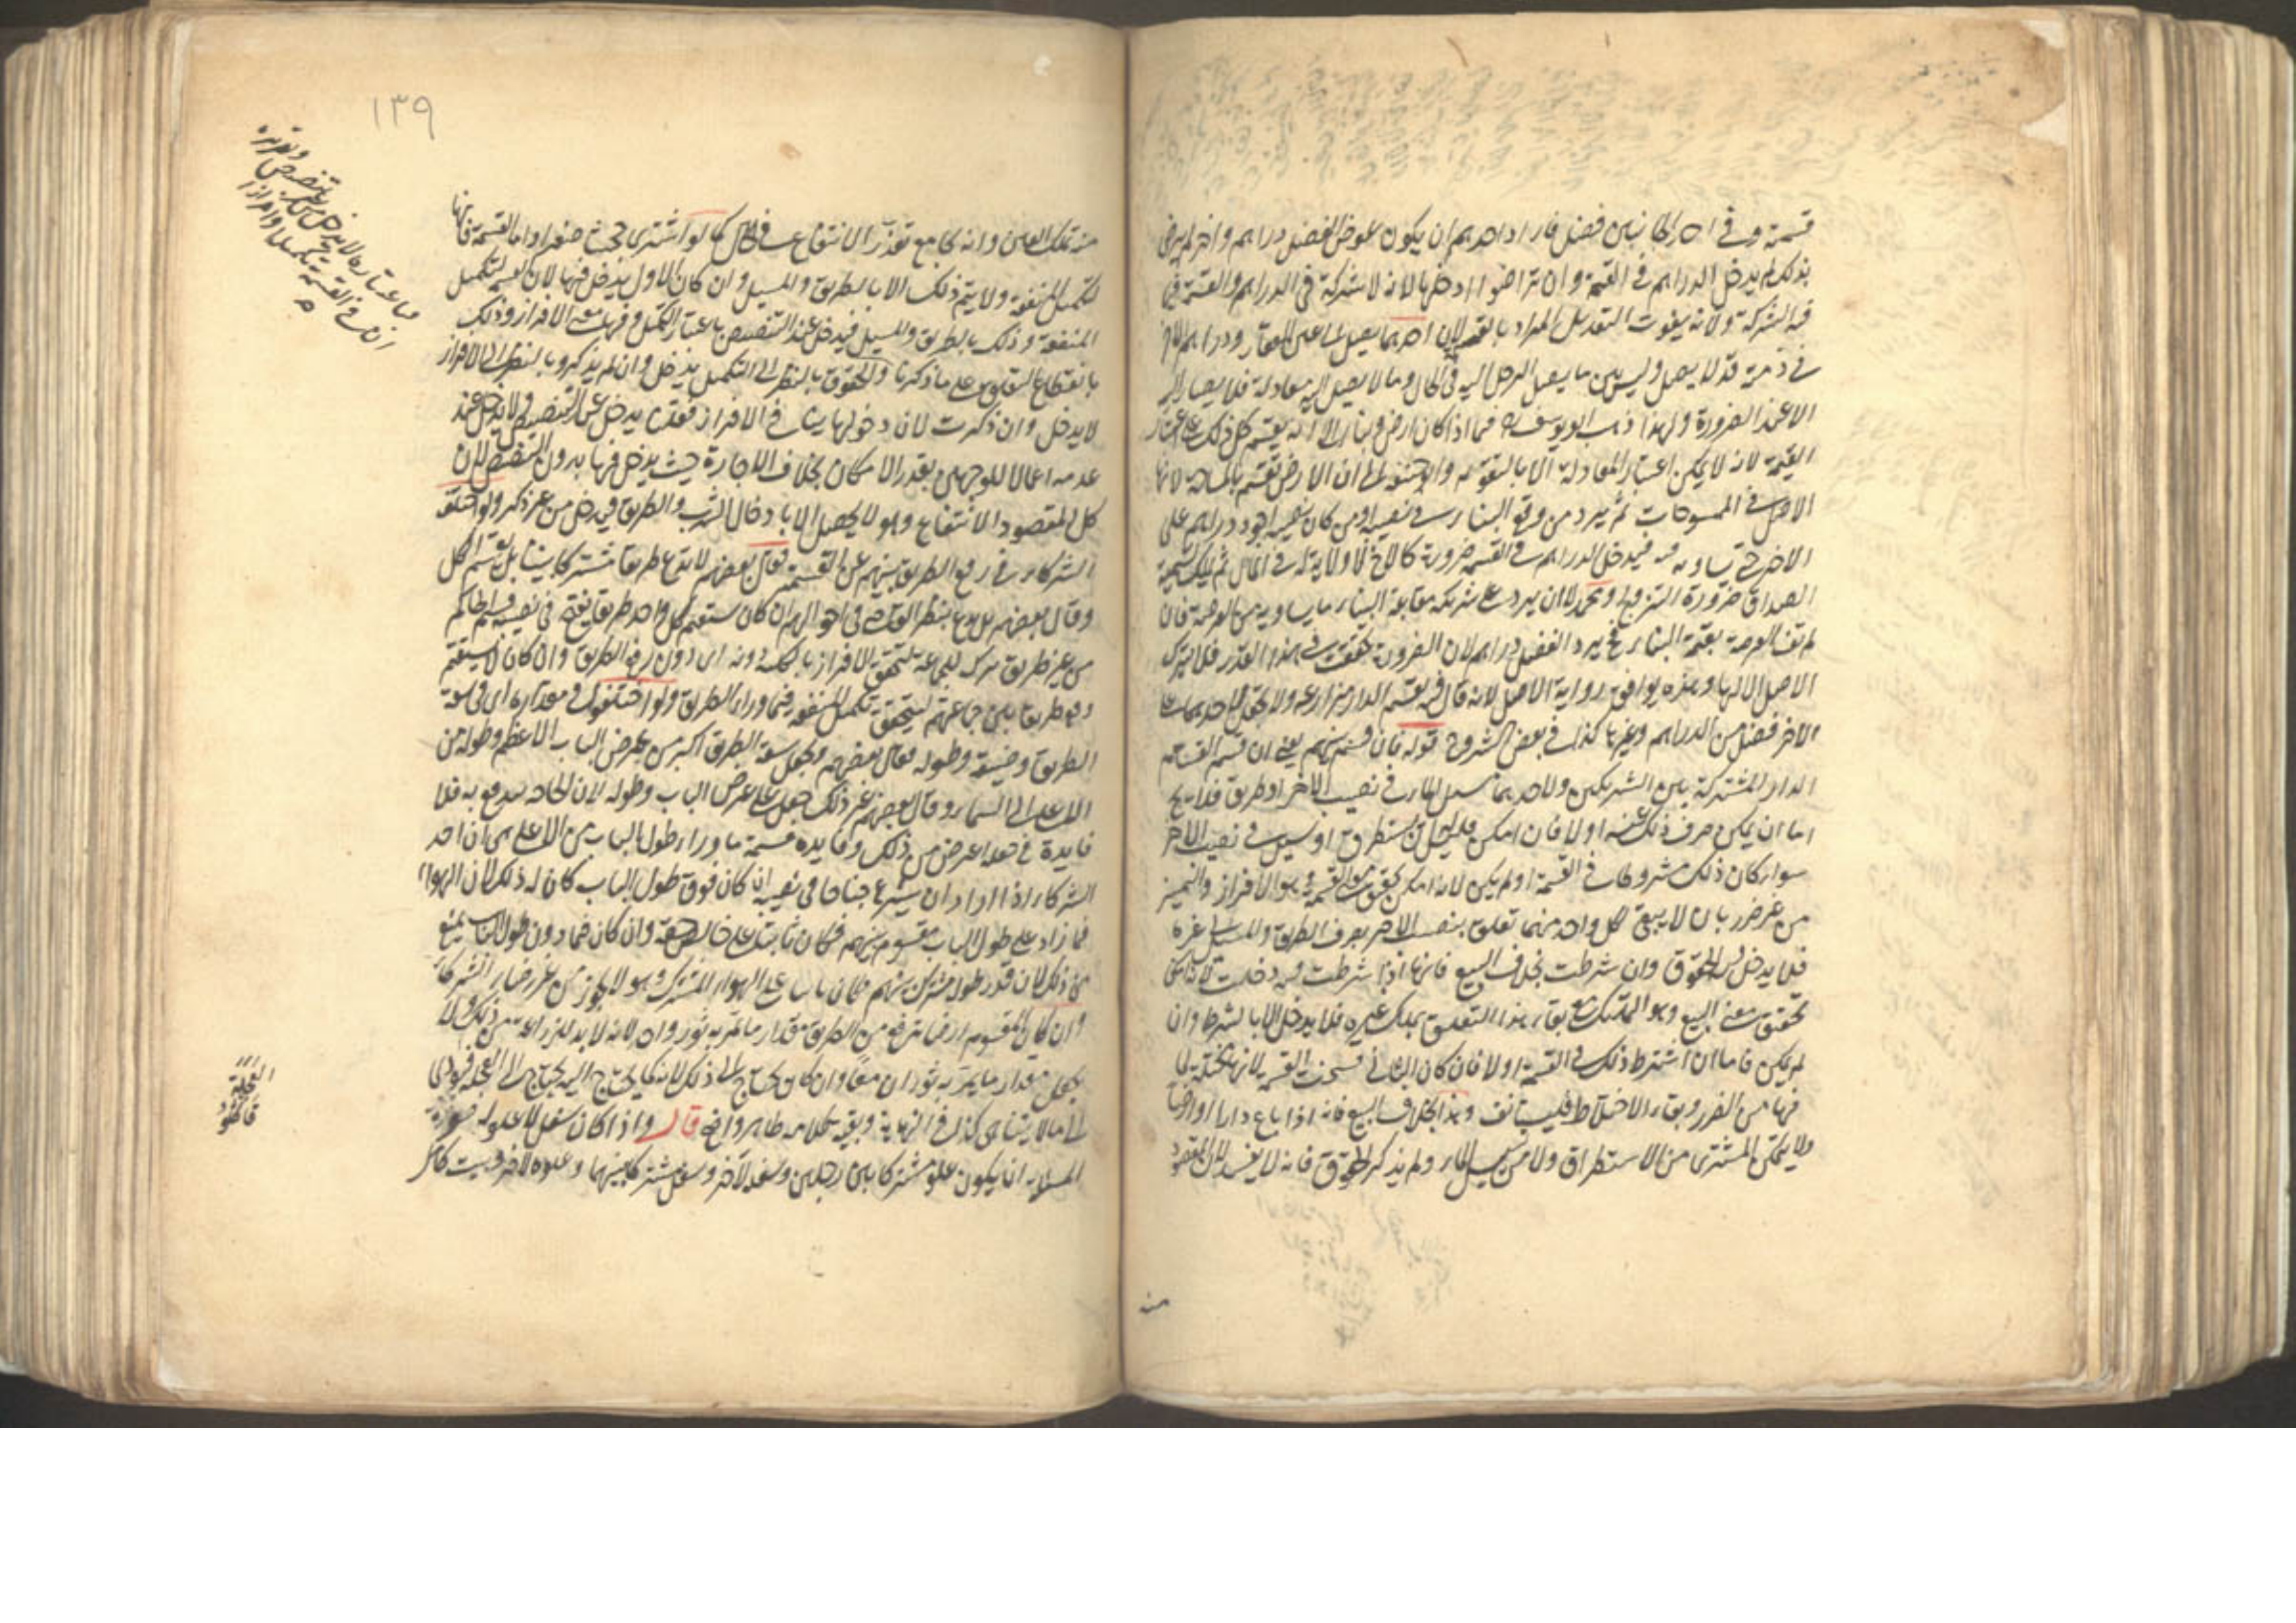 قسمته وفي احد الجانبين فضل فاراد احدهم ان يكون عوض الفضل دراهم والاخر لم يرض
بذلك لم يدخل الدراهم في القسمة وان تراضوا ادخلها لانه لا شركة في الدراهم والقسمة فيما
فيه الشركة ولانه يفوت التعديل المراد بالقسمة لان احدهما يصل الى عين العقار ودراهم الآخر
في ذمته قد لا يصل وليس بين ما يصل الرجل اليه في الحال وما لا يصل اليه معادلة فلا يصار اليه
الا عند الضرورة ولهذا ذهب ابو يوسف فيما اذا كان ارض وبناء الى انه يقسم كل ذلك على اعتبار
القيمة لانه لا يمكن اعتبار المعادلة الا بالتقويم وابو حنيفة الى ان الارض تقسم بالمساحة لانها
الاصل في الممسوحات ثم يرد من وقع البناء في نصيبه او من كان نصيبه اجود دراهم على
الاخر حتى يساويه فيدخل الدراهم في القسمة ضرورة كالاخ لا ولاية له في المال ثم يملك تسمية
الصداق ضرورة التزويج ومحمد الى ان يرد على شريكه مقابلة البناء ما يساويه من العرصة فان
لم تف العرصة بقيمة البناء ح يرد الفضل دراهم لان الضرورة تحققت في هذا القدر فلا يترك
الاصل الا لها وهذه يوافق رواية الاصل لانه قال فيه يقسم الدار مزارعة ولا يجعل لاحدهما على
الاخر فضل من الدراهم وغيرها كذا في بعض الشروح قوله فان قسم بينهم يعني ان قسم القسام
الدار المشتركة بين الشريكين ولاحدهما مسيل الماء في نصيب الاخر او طريق فلا يخ
اما ان يمكن صرف ذلك عنه او لا فان امكن فليس له ان يستطرق او يسيل في نصيب الاخر
سواء كان ذلك مشروطا في القسمة او لم يكن لانه امكن تحقيق معنى القسمة وهو الافراز والتمييز
من غير ضرر بان لا يبقى لكل واحد منهما تعلق بنصيب الاخر بصرف الطريق والمسيل الى غيره
فلا يدخل الحقوق وان شرطت بخلاف البيع فانها اذا شرطت فيه دخلت لانه امكن
تحقيق معنى البيع وهو التمليك مع بقاء هذا التعلق بملك غيره فلا يدخل الا بالشرط وان
لم يكن فاما ان اشترط ذلك في القسمة او لا فان كان الثاني فسخت القسمة لانها مختلة لما
فيها من الضرر وبقاء الاختلاط فليستانف وهذا بخلاف البيع فانه اذا باع دارا او ارضا
ولا يمكن المشتري من الاستطراق ولا من تسييل الماء ولم يذكر الحقوق فانه لا يفسد لان المقصود
منه
١٣٩
منه تملك العين وانه يجامع تعذر الانتفاع في الحال كما لو اشترى جحشا صغيرا واما القسمة فانها
لتكميل المنفعة ولا يتم ذلك الا بالطريق والمسيل وان كان الاول يدخل فيها لان القسمة لتكميل
المنفعة وذلك بالطريق والمسيل فيدخل عند التنصيص باعتبار التكميل وفيها معنى الافراز وذلك
بانقطاع التعلق على ما ذكرنا والحقوق بالنظر الى التكميل يدخل وان لم يذكر وبالنظر الى الافراز
لا يدخل وان ذكرت لان دخولها ينافي الافراز فقلنا يدخل عند التنصيص ولا يدخل عند
عدمه اعمالا للوجهين بقدر الامكان بخلاف الاجارة حيث يدخل فيها بدون التنصيص لان
كل المقصود الانتفاع وهو لا يحصل الا بادخال الشرب والطريق فيدخل من غير ذكر ولو اختلف
الشركاء في رفع الطريق بينهم عن القسمة فقال بعضهم لا يدع طريقا مشتركا بيننا بل يقسم الكل
وقال بعضهم بل يدع ينظر القاضي في احوالهم ان كان يستقيم لكل واحد طريقا يفتح في نصيبه قسم الحاكم
من غير طريق يترك للجماعة لتحقق الافراز بالكلية دونه اي دون رفع الطريق وان كان لا يستقيم
رفع طريقا بين جماعتهم ليتحقق تكميل المنفعة فيما وراء الطريق ولو اختلفوا في مقداره اي في سعة
الطريق وضيقه وطوله فقال بعضهم يجعل سعة الطريق اكبر من عرض الباب الاعظم وطوله من
الاعلى الى السماء وقال بعضهم غير ذلك جعل على عرض الباب وطوله لان الحاجة يندفع به فلا
فايدة في جعله اعرض من ذلك وفايدة قسمة ما وراء طول الباب من الاعلى هي ان احد
الشركاء اذا اراد ان يشرع جناحا في نصيبه ان كان فوق طول الباب كان له ذلك لان الهواء
فيما زاد على طول الباب مقسوم بينهم فكان بانيا على خالص حقه وان كان فيما دون طول الباب يمنع
من ذلك لان قدر طوله مشترك بينهم فكان بانيا على الهواء المشترك وهو لا يجوز من غير رضاء الشركاء
وان كان المقسوم ارضا يرفع من الطريق مقدار ما يمر به ثور واحد لانه لا بد للزراعة من ذلك ولا
يجعل مقدار ما يمر به ثوران معا وان كان يحتاج الى ذلك لانه كما يحتاج اليه يحتاج الى العجلة فيودي
الى ما لا يتناهى كذا في النهاية وبقية كلامه ظاهر واضح قال واذا كان سفل لا علو له صورة
المسئلة ان يكون علو مشتركا بين رجلين وسفله لآخر وسفل مشتركا بينهما وعلوه لاخر وبيت كامل